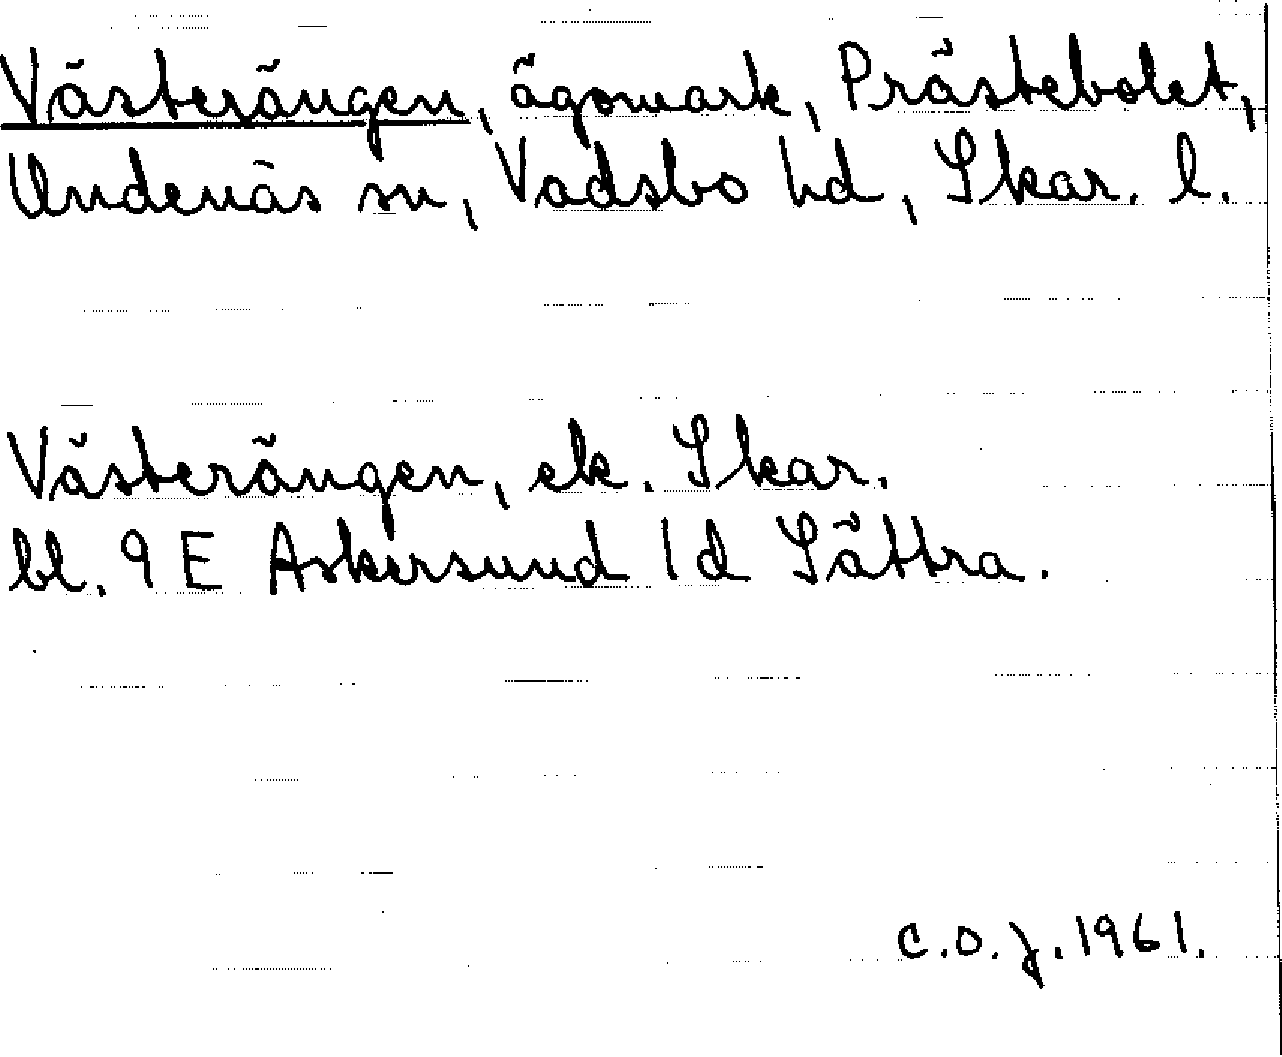 Västerängen, ägomark, Prästebolet,
Undenäs sn, Vadsbo hd, Skar. l.
Västerängen, ek. Skar.
bl. 9 E Askersund 1 d Sättra.
C.O.J. 1961.